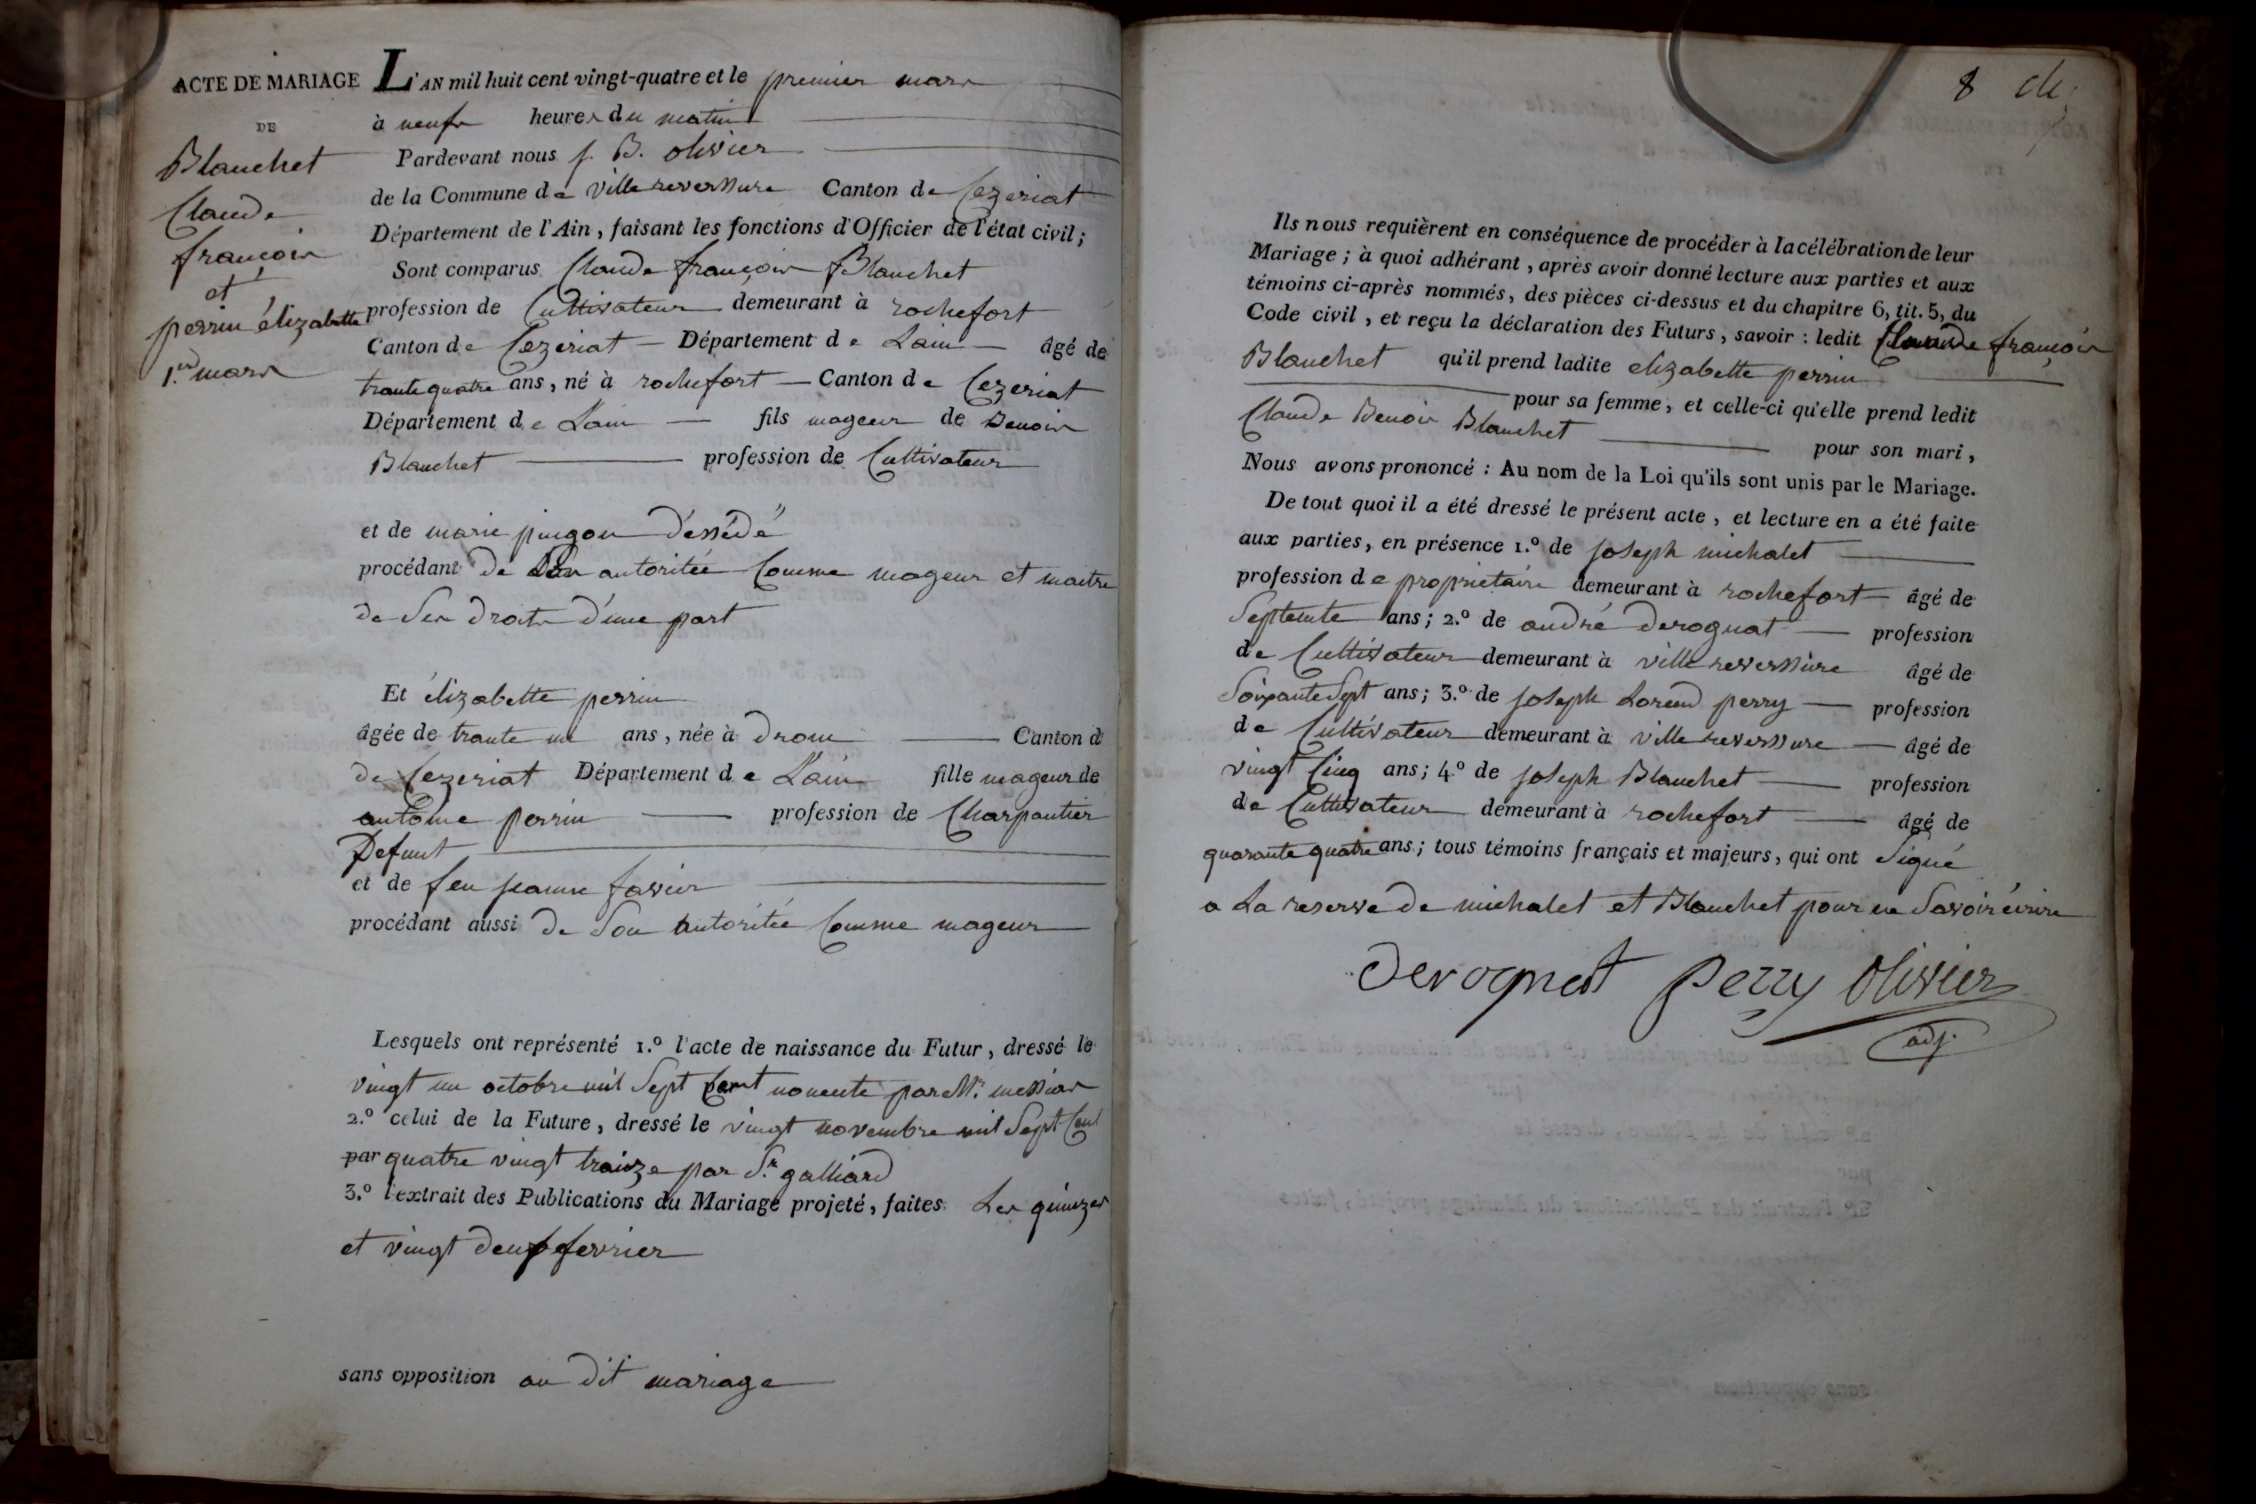 ACTE DE MARIAGE
DE
Blanchet
Claude
françois
et
perrin élizabette
1.er mars
L'AN mil huit cent vingt-quatre et le premier mars
à neufs heures du matin
Pardevant nous j. B. olivier
de la Commune de villereverssure Canton de Cezeriat
Département de l'Ain, faisant les fonctions d'Officier de l'état civil;
Sont comparus Claude françois Blanchet
profession de Cultivateur demeurant à rochefort
Canton de Cezeriat Département de Lain âgé de
trante quatre ans, né à rochefort Canton de Cezeriat
Département de Lain fils mageur de Benois
Blanchet profession de Cultivateur
et de marie pingon déssédé
procédant de Son autoritée Comme mageur et maitre
de Ses droits d'une part
Et élizabette perrin
âgée de trante un ans, née à drom Canton d
de Cezeriat Département de L'ain fille mageur de
antoine perrin profession de Charpantier
Defunt
et de feu jeanne favier
procédant aussi de Son autoritée Comme mageur
Lesquels ont représenté 1.º l'acte de naissance du Futur, dressé le
vingt un octobre mil Sept Cent nonente par Mr.
2.º celui de la Future, dressé le vingt novembre mil Sept Cent
par quatre vingt traize par Sr. galliard
3.º l'extrait des Publications du Mariage projeté, faites Les quinzes
et vingt deux fevrier
sans opposition au dit mariage
8
Ils nous requièrent en conséquence de procéder à la célébration de leur
Mariage; à quoi adhérant, après avoir donné lecture aux parties et aux
témoins ci-après nommés, des pièces ci-dessus et du chapitre 6, tit. 5, du
Code civil, et reçu la déclaration des Futurs, savoir: ledit Claude françois
Blanchet qu'il prend ladite elizabette perrin
pour sa femme, et celle-ci qu'elle prend ledit
Claude Benois Blanchet pour son mari,
Nous avons prononcé: Au nom de la Loi qu'ils sont unis par le Mariage.
De tout quoi il a été dressé le présent acte, et lecture en a été faite
aux parties, en présence 1.º de joseph michalet
profession de proprietaire demeurant à rochefort âgé de
Septente ans; 2.º de andré derognat profession
de Cultivateur demeurant à villereverssure âgé de
Soixante Sept ans; 3.º de joseph Lorend perry profession
de Cultivateur demeurant à villereverssure âgé de
vingt Cinq ans; 4.º de joseph Blanchet profession
de Cultivateur demeurant à rochefort âgé de
quarante quatre ans; tous témoins français et majeurs, qui ont Signé
a La reserve de michalet et Blanchet pour ne Savoir écrire
derognat perry Olivier
adj.